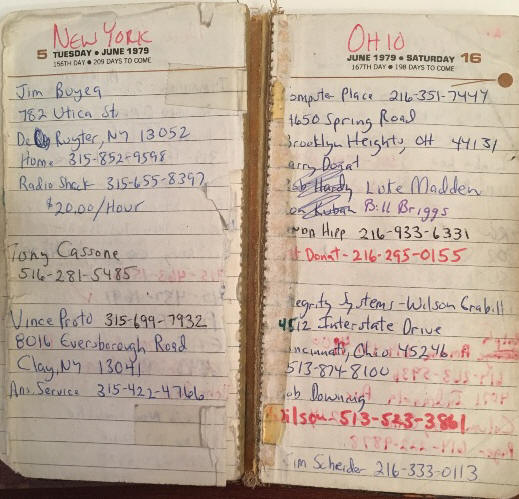 NEW YORK
5 TUESDAY • JUNE 1979
156TH DAY • 209 DAYS TO COME
Jim Buyea
782 Utica St.
De Ruyter, NY 13052
Home 315-852-9598
Radio Shack 315-655-8397
$20.00/Hour
Tony Cassone
516-281-5485
Vince Proto 315-699-7932
8016 Eversborough Road
Clay, NY 13041
Ans. Service 315-422-4766
OHIO
JUNE 1979 • SATURDAY 16
167TH DAY • 198 DAYS TO COME
omputer Place 216-351-7447
4650 Spring Road
Brooklyn Heights, OH 44131
arry Donat
Hardy Luke Madden
Kubah Bill Briggs
on Hipp 216-933-6331
t Donat - 216-295-0155
tegrity Systems - Wilson Crabill
4512 Interstate Drive
incinnati, Ohio 45246
513-874-8100
ob Downing
Wilson - 513-523-3861
Jim Scheider 216-333-0113